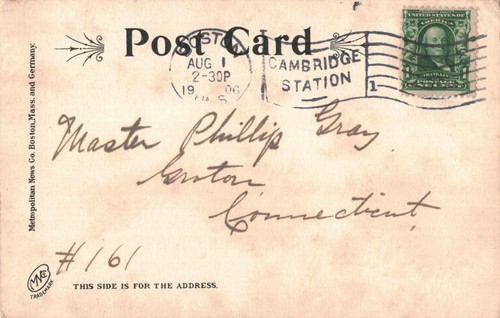 Post Card
BOSTON
AUG 1
2-30P
1906
MASS
CAMBRIDGE
STATION
1
UNITED STATES OF AMERICA
FRANKLIN
POSTAGE
ONE CENT
Master Phillip Gray
Groton
Connecticut,
#161
Metropolitan News Co. Boston, Mass. and Germany.
MNC
TRADEMARK
THIS SIDE IS FOR THE ADDRESS.